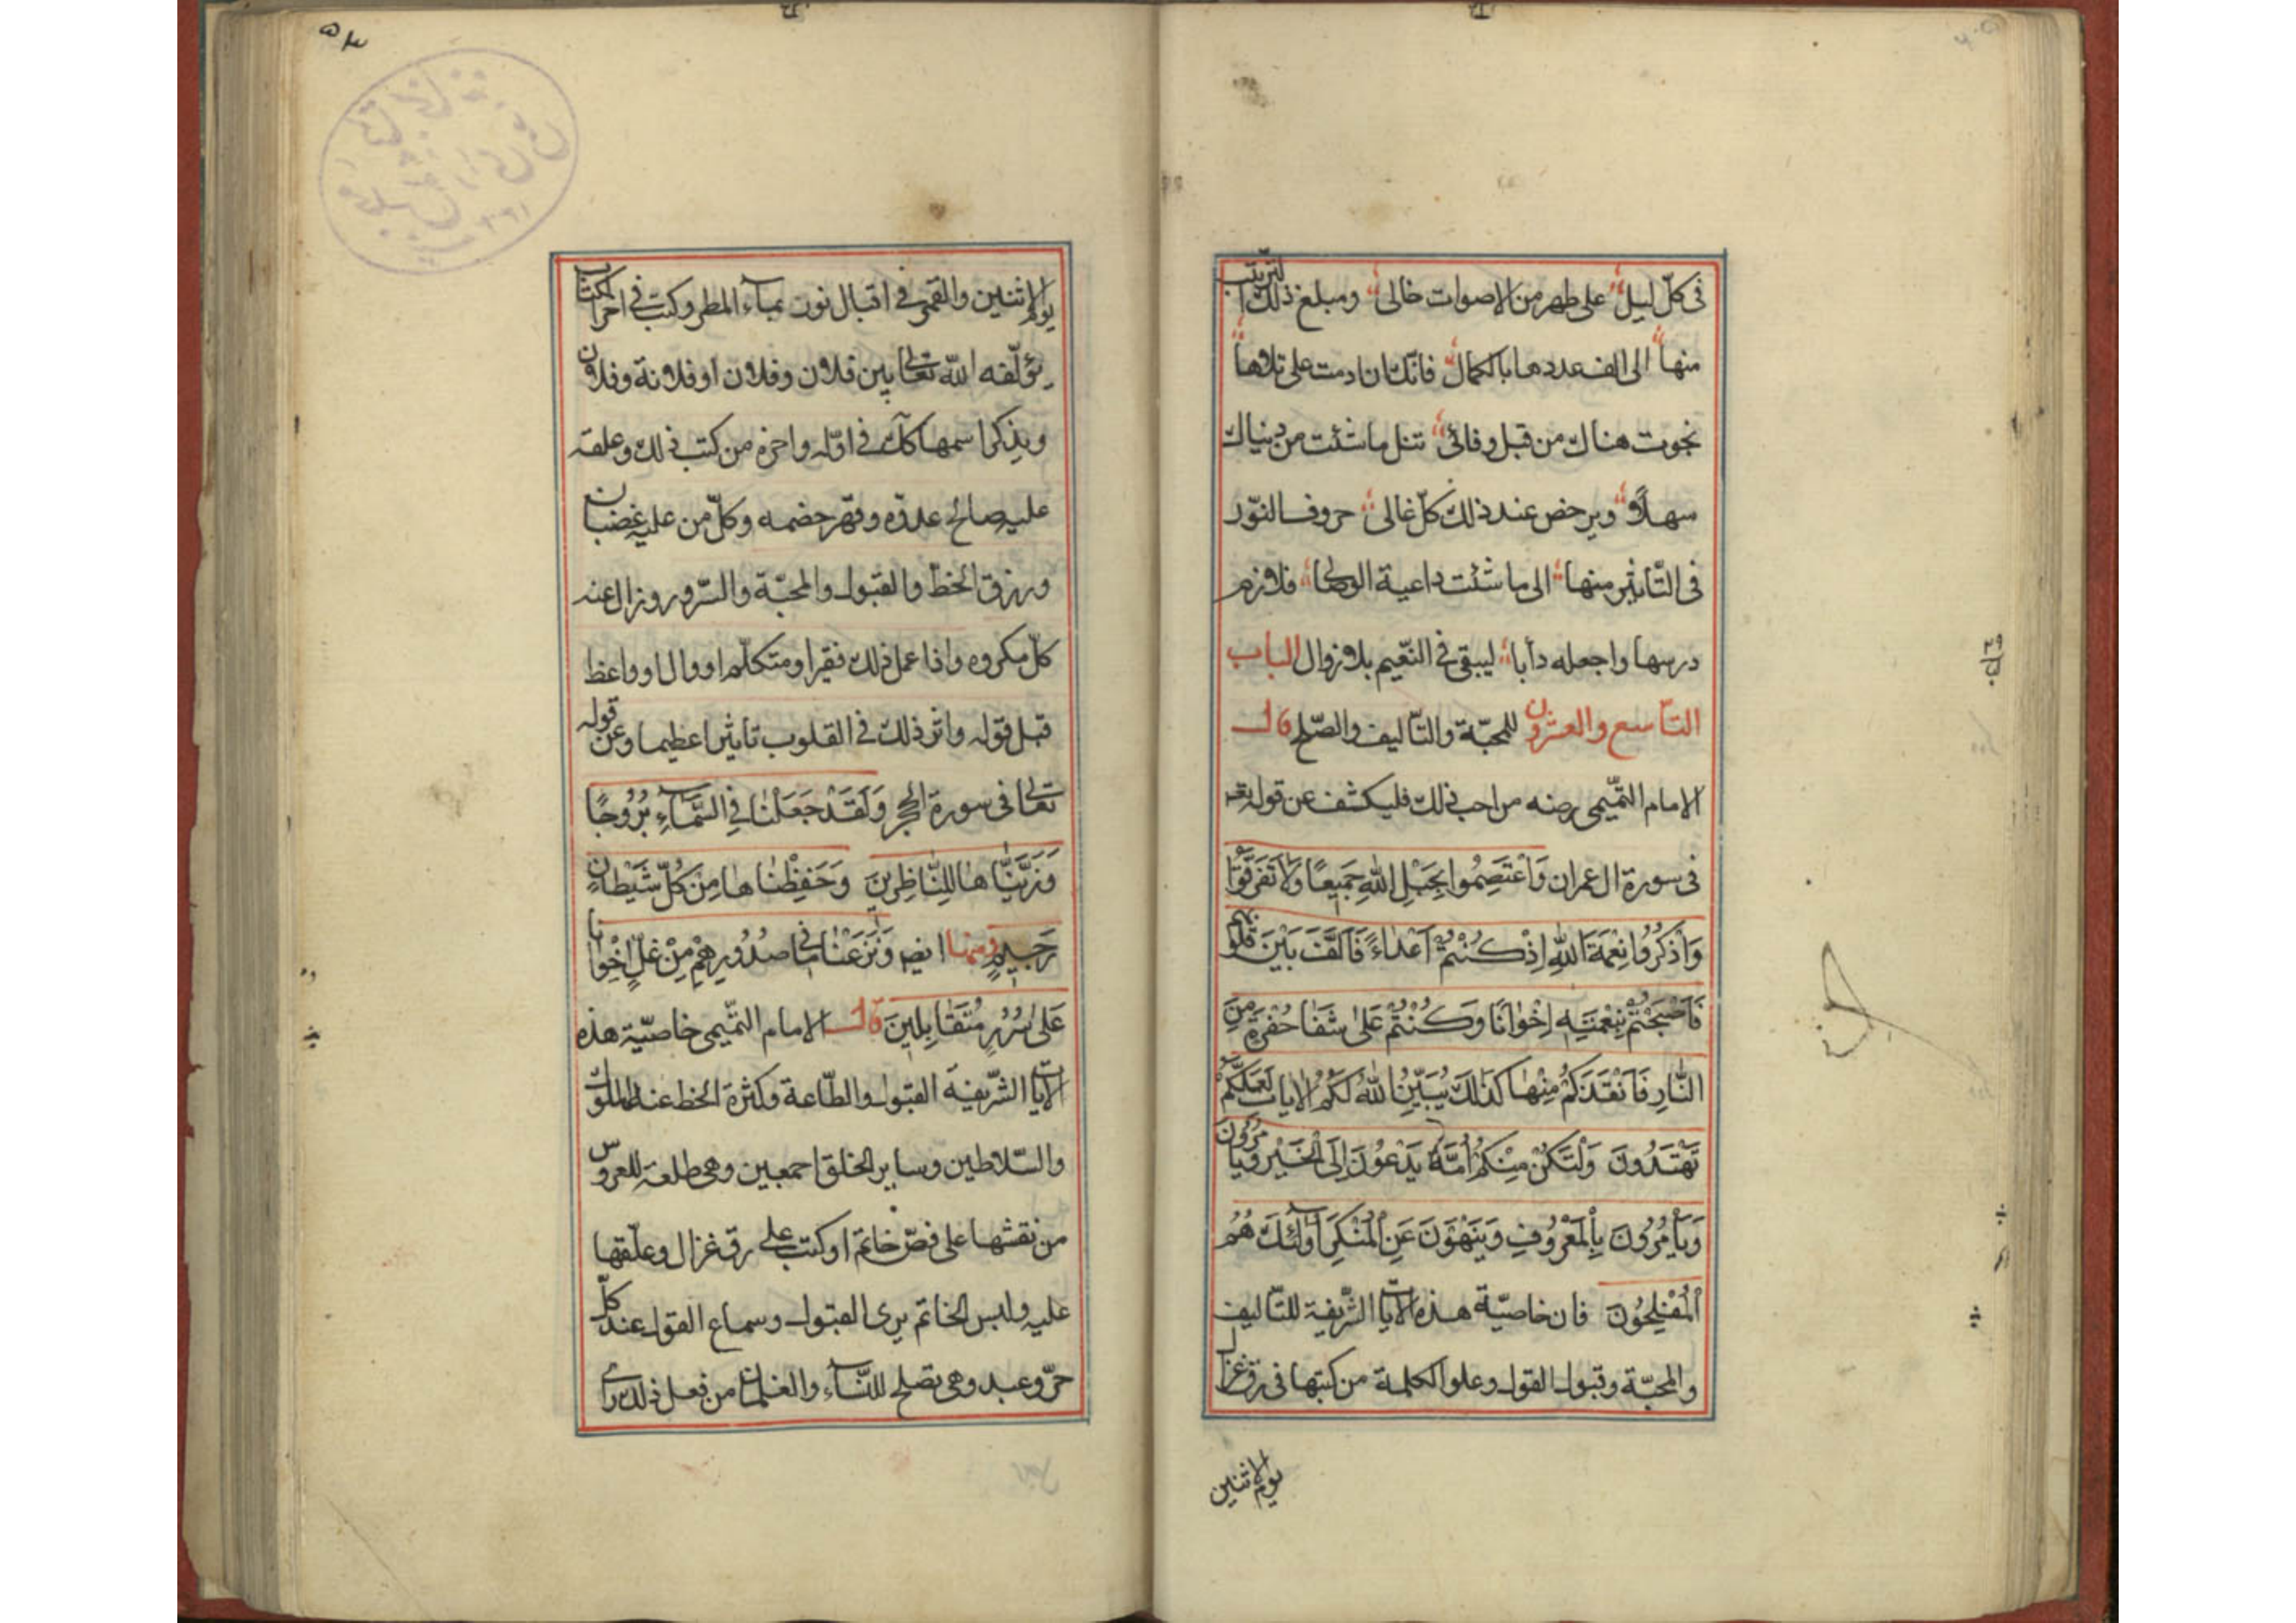 فى كلّ ليل على طهر من الاصوات خالى ومبلغ ذلك التربيب
منها الى الف عددها بالكمال فانّك ان دمت على تلاوها
نجوت هناك من قبل وفائى تنل ما شئت من دنياك
سهلاً ويرخص عند ذلك كلّ غالى حروف النّور
فى التّاثير منها الى ما شئت داعية الوصال فلازم
درسها واجعله دأبا ليبقى فى النّعيم بلا زوال الباب
التاسع والعشرون للمحبّة والتّاليف والصّلح قال
الامام التّميمى رضه من احب ذلك فليكشف عن قوله تعه
فى سورة ال عمران وَاعْتَصِمُوا بِحَبْلِ اللهِ جَمِيعًا وَلَا تَفَرَّقُوْا
وَاذْكُرُوا نِعْمَةَ اللهِ اِذْ كُنْتُمْ اَعْدَاءً فَاَلَّفَ بَيْنَ قُلُوبِكُمْ
فَاَصْبَحْتُمْ بِنِعْمَتِهِ اِخْوَانًا وَكُنْتُمْ عَلَى شَفَا حُفْرَةٍ مِنَ
النَّارِ فَاَنْقَذَكُمْ مِنْهَا كَذَلِكَ يُبَيِّنُ اللهُ لَكُمُ الايات لَعَلَّكُمْ
تَهْتَدُونَ وَلْتَكُنْ مِنْكُمْ اُمَّةٌ يَدْعُوْنَ اِلَى الْخَيْرِ وَيَاْمُرُونَ
وَيَأْمُرُونَ بِالْمَعْرُوفِ وَيَنْهَوْنَ عَنِ الْمُنْكَرِ اُولَئِكَ هُمُ
الْمُفْلِحُونَ فان خاصيّة هذه الايات الشّريفة للتّاليف
والمحبّة وقبول القول وعلو الكلمة من كتبها فى رق غزال
يوم الاثنين
باب ٢٩
يوم الاثنين والقمر فى اقبال نوره بماء المطر وكتب فى اخر الكتاب
يؤلّفه الله تعالى بين فلان وفلان او فلانة وفلان
ويذكر اسمها كل فى اوّله واخره من كتب ذلك وعلقه
عليه صالح عدوّه وقهر خصمه وكلّ من عليه غضبان
ورزق الحظ والقبول والمحبّة والسّرور وزال عنه
كلّ مكروه واذا عمل ذلك فقير او متكلّم او وال او واعظ
قبل قوله واثر ذلك فى القلوب تاثيرا عظيما وعن قوله
تعالى فى سورة الحجر وَلَقَدْ جَعَلْنَا فِى السَّمَاءِ بُرُوجًا
وَزَيَّنَّاهَا لِلنَّاظِرِينَ وَحَفِظْنَاهَا مِنْ كُلِّ شَيْطَانٍ
رَجِيمٍ ومنها ايضه وَنَزَعْنَا مَا فِى صُدُورِهِمْ مِنْ غِلٍّ اِخْوَانًا
عَلَى سُرُرٍ مُتَقَابِلِينَ قال الامام التّميمى خاصيّة هذه
الايات الشّريفة القبول والطّاعة وكثرة الحظ عند الملوك
والسّلاطين وساير الخلق اجمعين وهى طلعة للعروس
من نقشها على فصّ خاتم او كتب على رق غزال وعلّقها
عليه ولبس الخاتم يرى القبول وسماع القول عند كلّ
حرّ وعبد وهى تصلح للنّساء والغلمان من فعل ذلك يراى